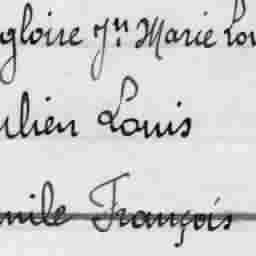 gloire Jn Marie Lou
ulien Louis
mile François